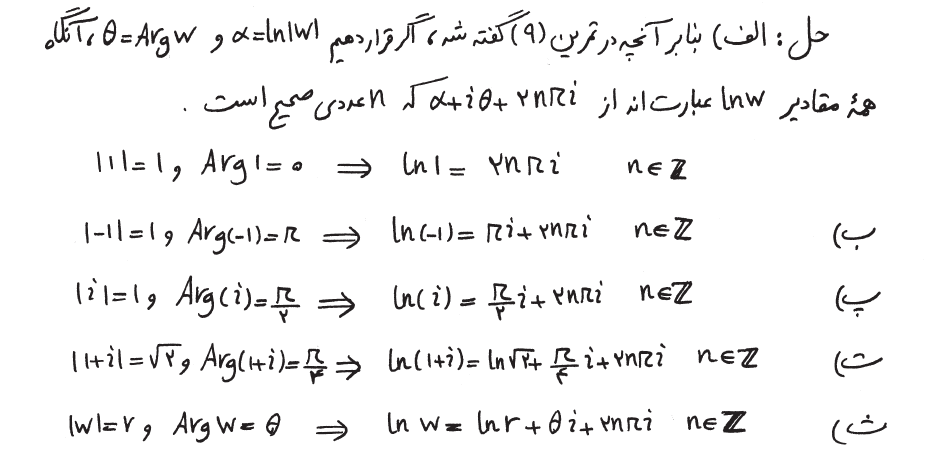 حل: الف) بنابر آنچه در تمرین (۹) گفته شد، اگر قرار دهیم α=ln|w| و θ=Arg w، آنگاه
همهٔ مقادیر lnw عبارت اند از α+iθ+۲nπi که n عددی صحیح است.
|۱|=۱ و Arg۱=۰ ⟹ ln۱= ۲nπi n∈ℤ
ب) |-۱|=۱ و Arg(-۱)=π ⟹ ln(-۱)= πi+۲nπi n∈ℤ
پ) |i|=۱ و Arg(i)=π/۲ ⟹ ln(i) = π/۲ i+۲nπi n∈ℤ
ت) |۱+i|=√۲ و Arg(۱+i)=π/۴ ⟹ ln(۱+i)= ln√۲+ π/۴ i+۲nπi n∈ℤ
ث) |w|=r و Arg w= θ ⟹ ln w= lnr+θi+۲nπi n∈ℤ